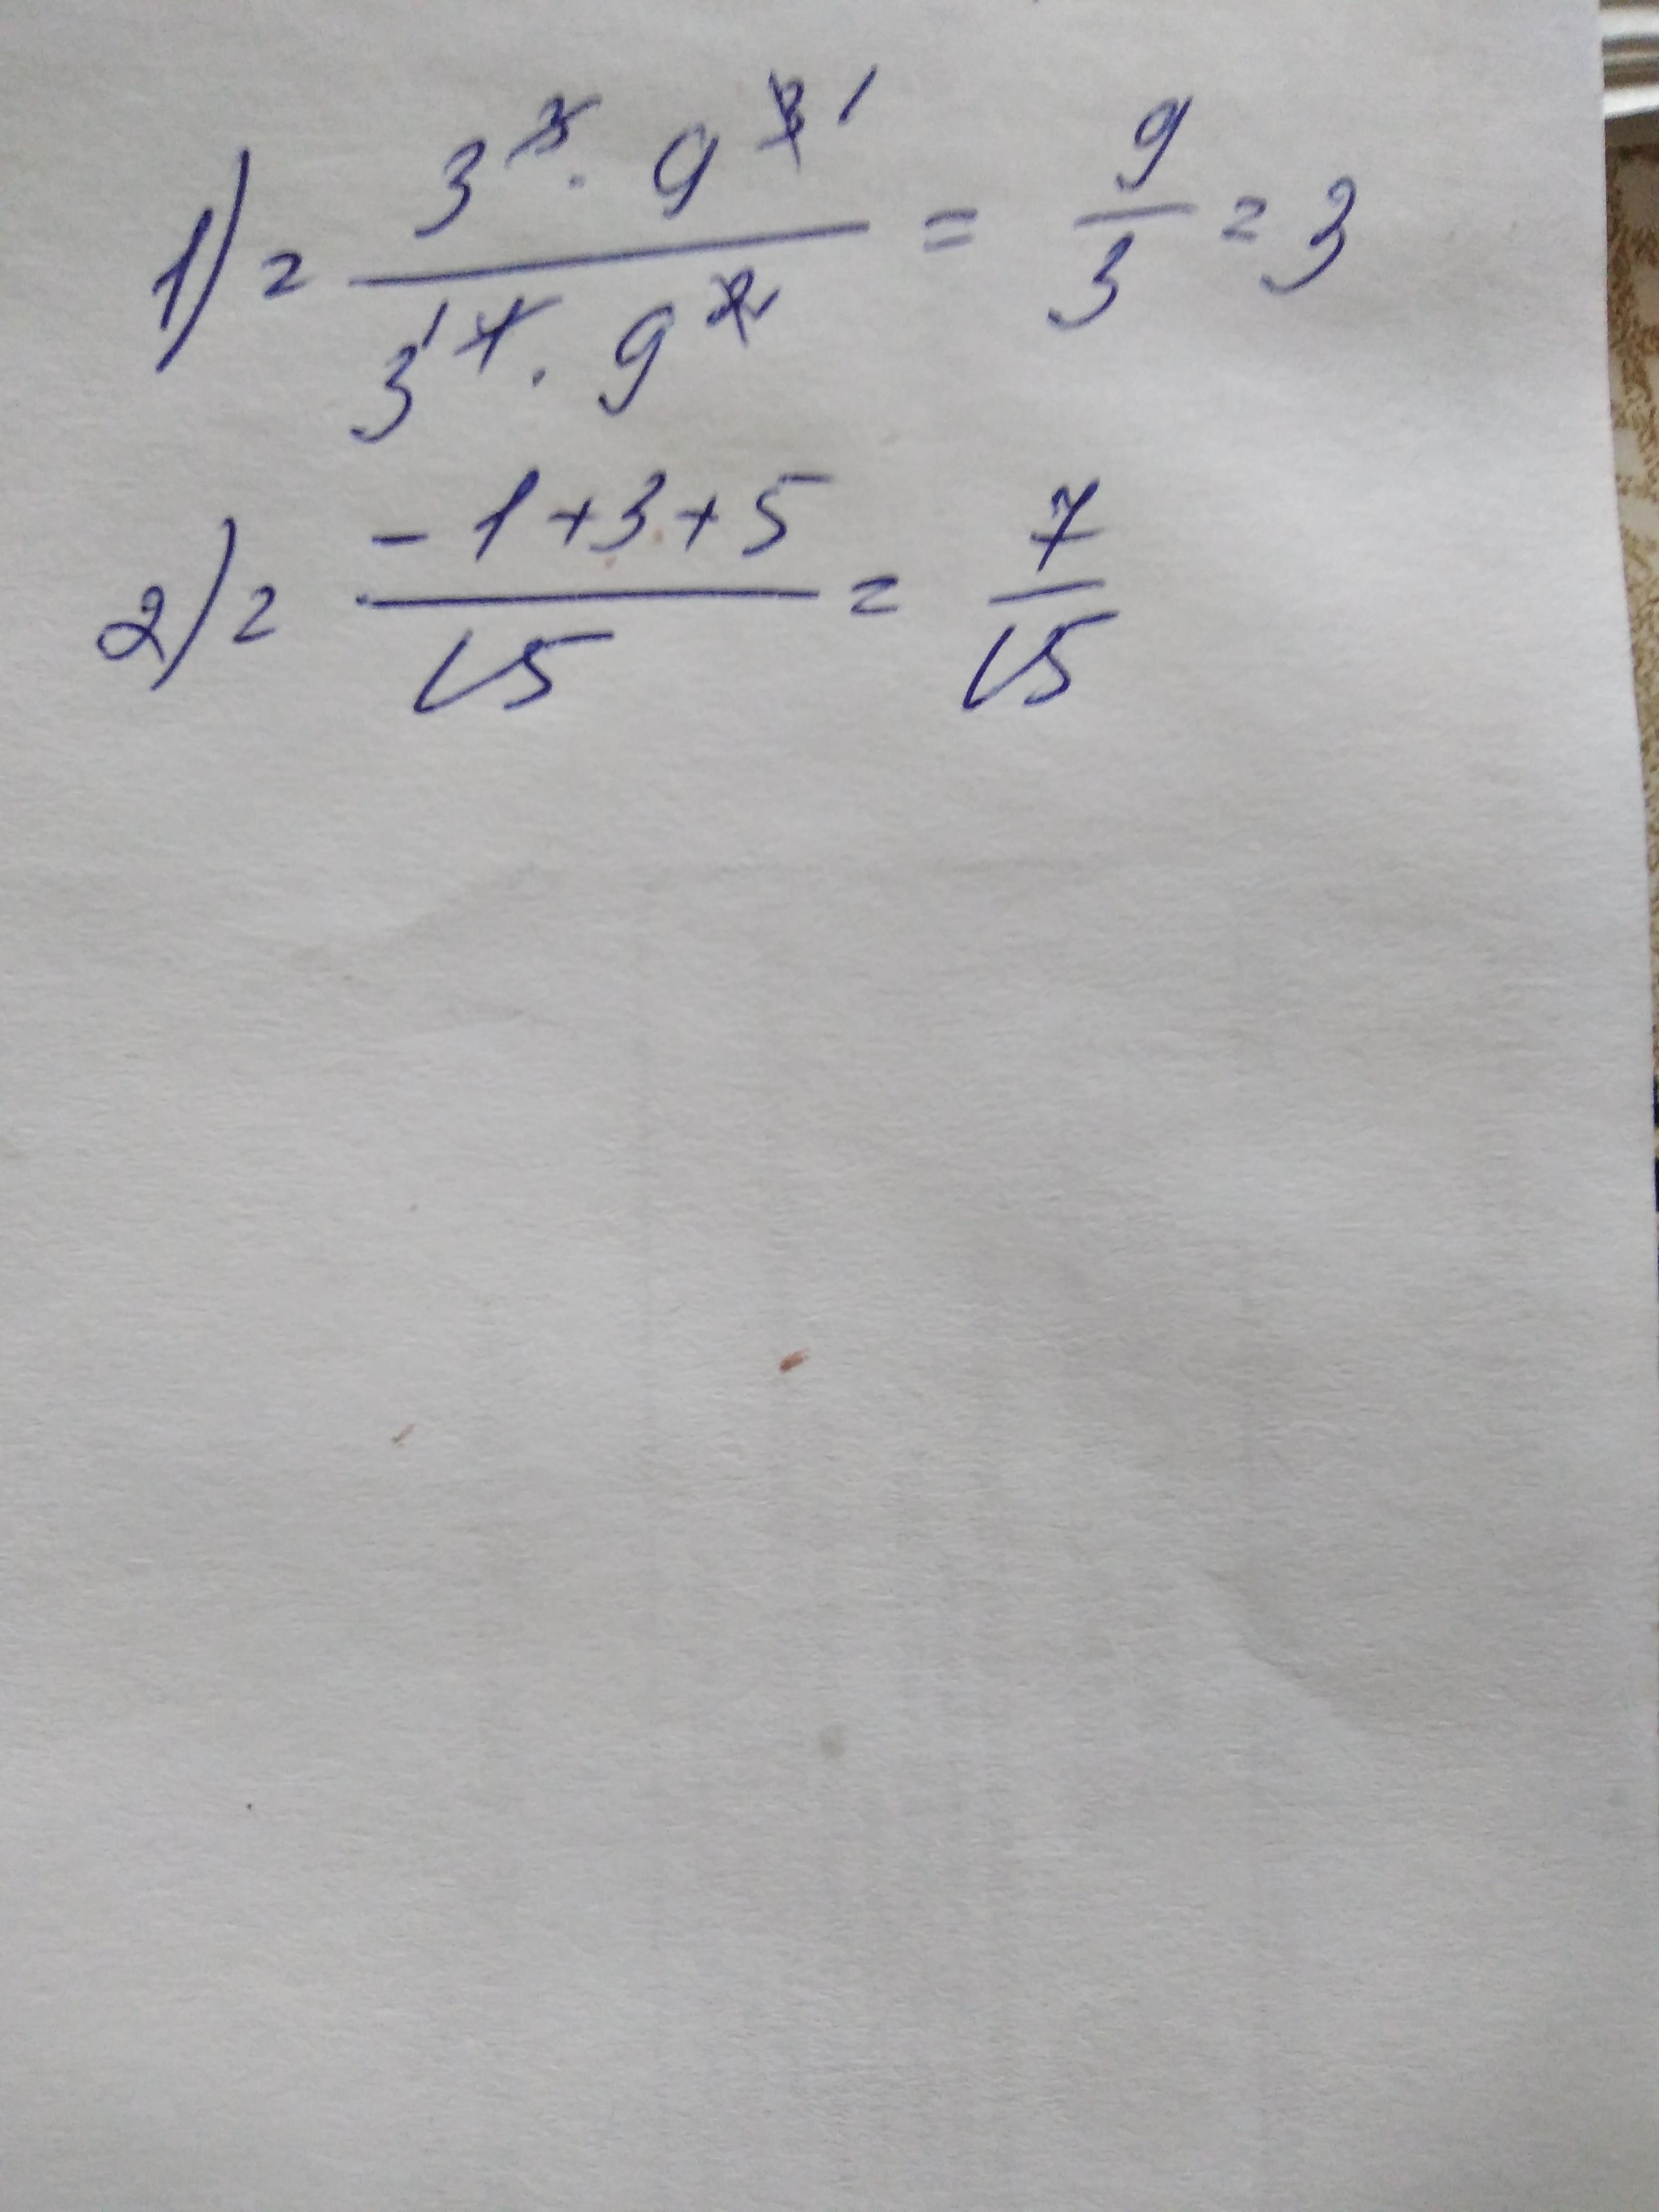 1) = 3³ · 9³ ¹ / 3¹ ⁴ · 9² = 9/3 = 3
2) = -1+3+5 / 15 = 7/15